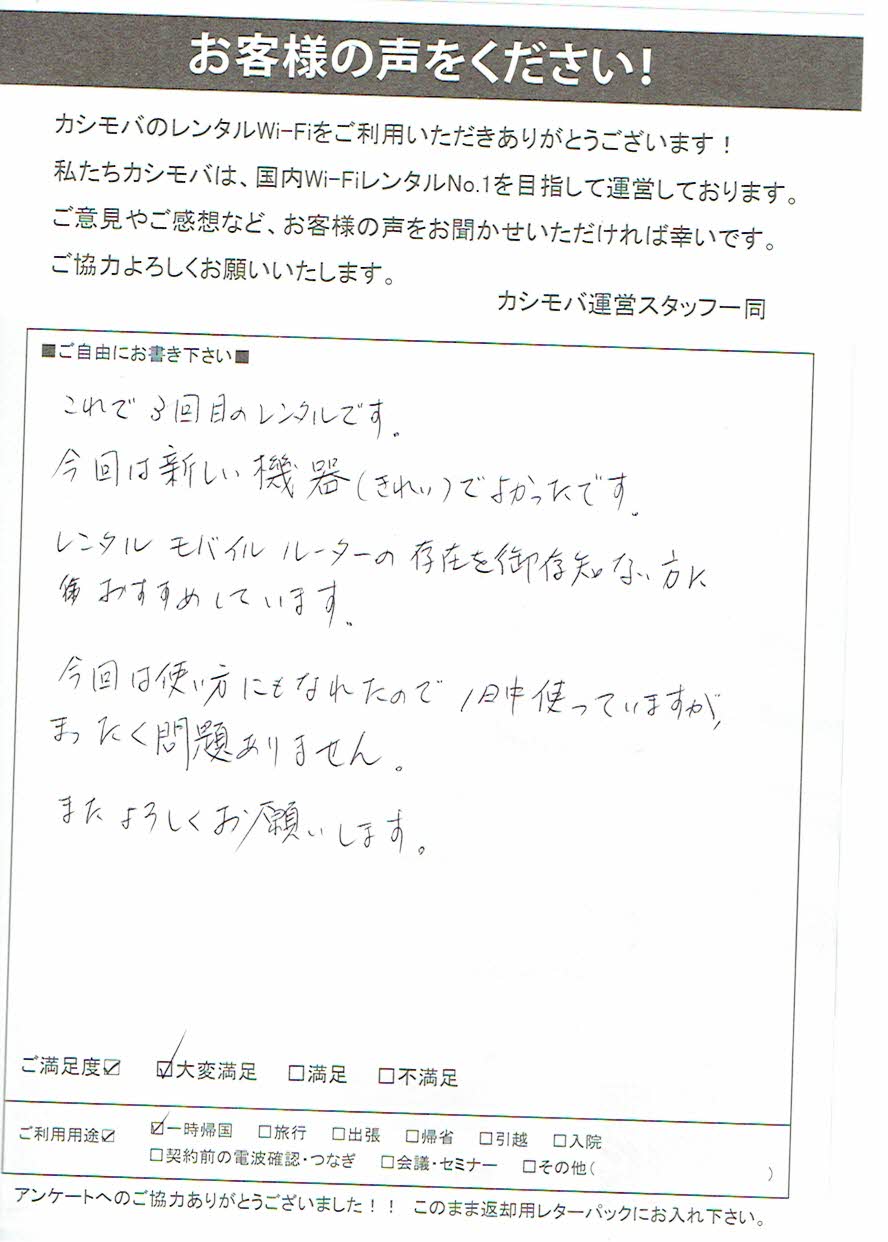 お客様の声をください!
カシモバのレンタルWi-Fiをご利用いただきありがとうございます!
私たちカシモバは、国内Wi-FiレンタルNo.1を目指して運営しております。
ご意見やご感想など、お客様の声をお聞かせいただければ幸いです。
ご協力よろしくお願いいたします。
カシモバ運営スタッフ一同
■ご自由にお書き下さい■
これで3回目のレンタルです。
今回は新しい機器(きれい)でよかったです。
レンタル モバイル ルーターの存在を御存知ない方に
おすすめしています。
今回は使い方にもなれたので1日中使っていますが、
まったく問題ありません。
またよろしくお願いします。
ご満足度☑ ☑大変満足 □満足 □不満足
ご利用用途☑ ☑一時帰国 □旅行 □出張 □帰省 □引越 □入院
□契約前の電波確認・つなぎ □会議・セミナー □その他( )
アンケートへのご協力ありがとうございました!! このまま返却用レターパックにお入れ下さい。